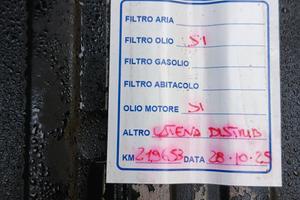 FILTRO ARIA
FILTRO OLIO SI
FILTRO GASOLIO
FILTRO ABITACOLO
OLIO MOTORE SI
ALTRO CATENA DISTRIB
KM 219653 DATA 28-10-25